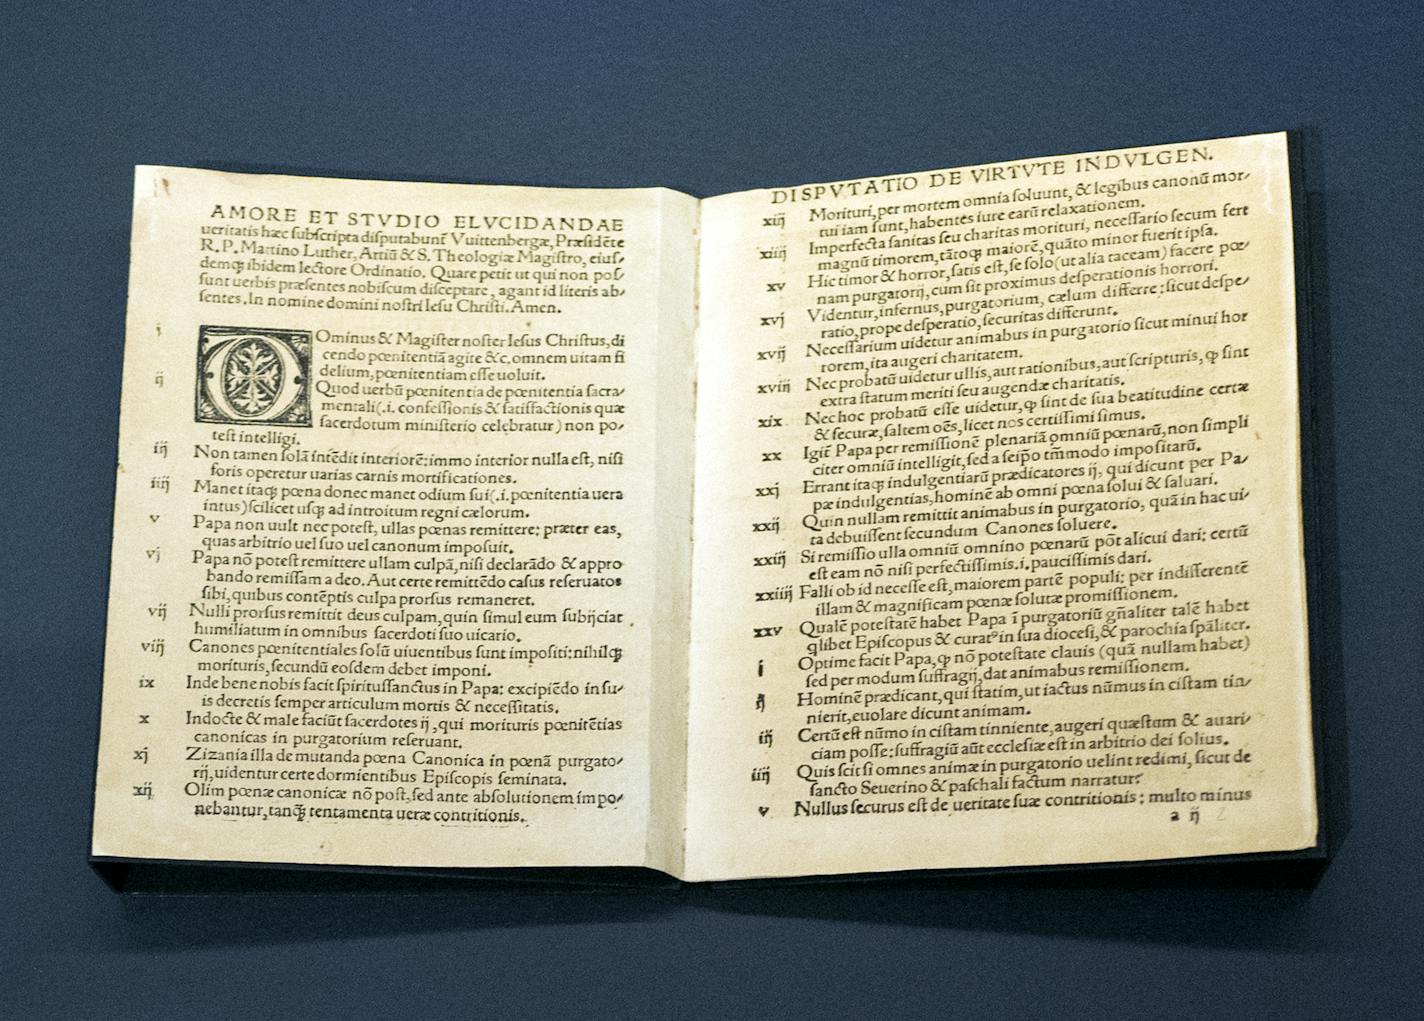 AMORE ET STVDIO ELVCIDANDAE
ueritatis hæc subscripta disputabunť Vuittenbergæ, Præsidēte
R. P. Martino Luther, Artiū & S. Theologiæ Magistro, eius-
demq; ibidem lectore Ordinatio. Quare petit ut qui non pos-
sunt uerbis præsentes nobiscum disceptare, agant id literis ab-
sentes. In nomine domini nostri Iesu Christi. Amen.
i DOminus & Magister noster Iesus Christus, di
cendo pœnitentiā agite &c. omnem uitam fi
delium, pœnitentiam esse uoluit.
ij Quod uerbū pœnitentia de pœnitentia sacra-
mentali(.i. confessionis & satisfactionis quæ
sacerdotum ministerio celebratur) non po-
test intelligi.
iij Non tamen solā intēdit interiorē: immo interior nulla est, nisi
foris operetur uarias carnis mortificationes.
iiij Manet itaq; pœna donec manet odium sui(.i. pœnitentia uera
intus) scilicet usq; ad introitum regni cælorum.
v Papa non uult nec potest, ullas pœnas remittere: præter eas,
quas arbitrio uel suo uel canonum imposuit.
vj Papa nō potest remittere ullam culpā, nisi declarādo & appro
bando remissam a deo. Aut certe remittēdo casus reseruatos
sibi, quibus contēptis culpa prorsus remaneret.
vij Nulli prorsus remittit deus culpam, quin simul eum subijciat
humiliatum in omnibus sacerdoti suo uicario.
viij Canones pœnitentiales solū uiuentibus sunt impositi: nihilq;
morituris, secundū eosdem debet imponi.
ix Inde bene nobis facit spiritussanctus in Papa: excipiēdo in su-
is decretis semper articulum mortis & necessitatis.
x Indocte & male faciūt sacerdotes ij, qui morituris pœnitētias
canonicas in purgatorium reseruant.
xj Zizania illa de mutanda pœna Canonica in pœnā purgato-
rij, uidentur certe dormientibus Episcopis seminata.
xij Olim pœnæ canonicæ nō post, sed ante absolutionem impo-
nebantur, tanq̄ tentamenta ueræ contritionis.
DISPVTATIO DE VIRTVTE INDVLGEN.
xiij Morituri, per mortem omnia soluunt, & legibus canonū mor-
tui iam sunt, habentes iure earū relaxationem.
xiiij Imperfecta sanitas seu charitas morituri, necessario secum fert
magnū timorem, tātoq; maiorē, quāto minor fuerit ipsa.
xv Hic timor & horror, satis est, se solo(ut alia taceam) facere pœ-
nam purgatorij, cum sit proximus desperationis horrori.
xvj Videntur, infernus, purgatorium, cælum differre: sicut despe-
ratio, prope desperatio, securitas differunt.
xvij Necessarium uidetur animabus in purgatorio sicut minui hor
rorem, ita augeri charitatem.
xviij Nec probatū uidetur ullis, aut rationibus, aut scripturis, ꝙ sint
extra statum meriti seu augendæ charitatis.
xix Nec hoc probatū esse uidetur, ꝙ sint de sua beatitudine certæ
& securæ, saltem oēs, licet nos certissimi simus.
xx Igiť Papa per remissionē plenariā omniū pœnarū, non simpli
citer omniū intelligit, sed a seip̄o tm̄modo impositarū.
xxj Errant itaq; indulgentiarū prædicatores ij, qui dicunt per Pa-
pæ indulgentias, hominē ab omni pœna solui & saluari.
xxij Quin nullam remittit animabus in purgatorio, quā in hac ui-
ta debuissent secundum Canones soluere.
xxiij Si remissio ulla omniū omnino pœnarū pōt alicui dari: certū
est eam nō nisi perfectissimis.i. paucissimis dari.
xxiiij Falli ob id necesse est, maiorem partē populi: per indifferentē
illam & magnificam pœnæ solutæ promissionem.
xxv Qualē potestatē habet Papa ī purgatoriū gn̄aliter talē habet
qlibet Episcopus & curat9 in sua diocesi, & parochia sp̄aliter.
i Optime facit Papa, ꝙ nō potestate clauis (quā nullam habet)
sed per modum suffragij, dat animabus remissionem.
ij Hominē prædicant, qui statim, ut iactus nūmus in cistam tin-
nierit, euolare dicunt animam.
iij Certū est nūmo in cistam tinniente, augeri quæstum & auari-
ciam posse: suffragiū aūt ecclesiæ est in arbitrio dei solius.
iiij Quis scit si omnes animæ in purgatorio uelint redimi, sicut de
sancto Seuerino & paschali factum narratur?
v Nullus securus est de ueritate suæ contritionis: multo minus
a ij